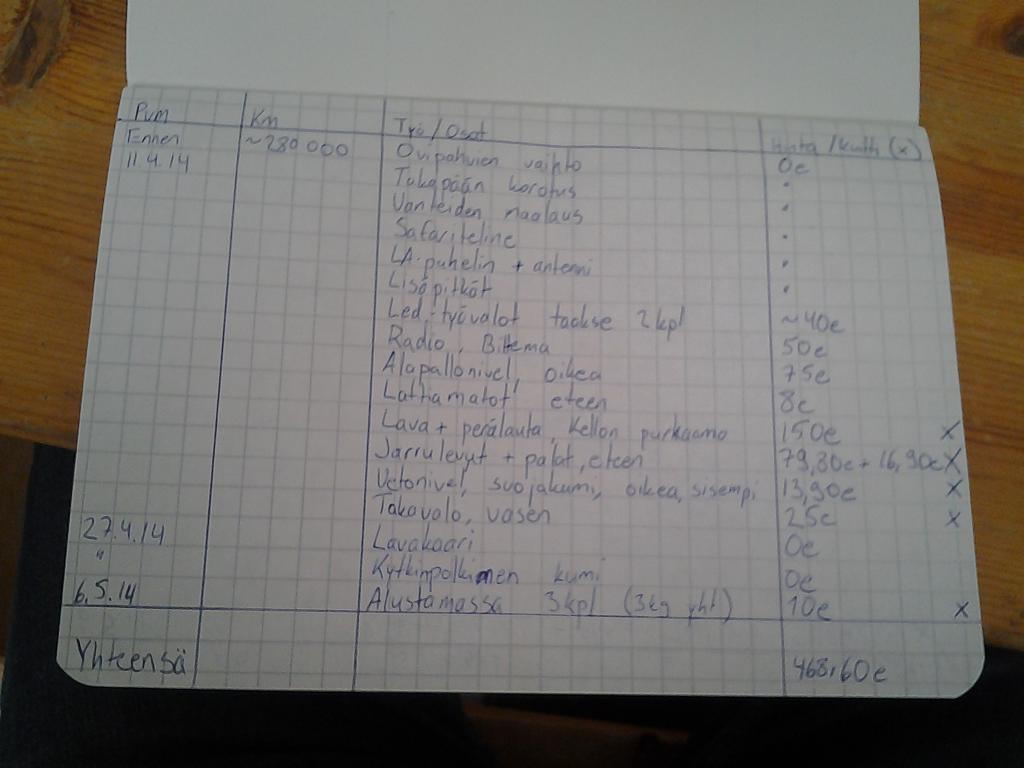 Pvm Km Työ / Osat Hinta / Kuitti (x)
Ennen ~280 000 Ovipahvien vaihto 0e
11.4.14 Takapään korotus "
Vanteiden maalaus "
Safariteline "
LA-puhelin + antenni "
Lisäpitkät "
Led-työvalot taakse 2kpl ~40e
Radio, Biltema 50e
Alapallonivel, oikea 75e
Lattiamatot eteen 8e
Lava + perälauta, Kellon purkaamo 150e x
Jarrulevyt + palat, eteen 79,80e + 16,90e x
Vetonivel, suojakumi, oikea, sisempi 13,90e x
Takavalo, vasen 25e x
27.4.14 Lavakaari 0e
" Kytkinpolkimen kumi 0e
6.5.14 Alustamassa 3kpl (3kg yht) 10e x
Yhteensä 468,60e